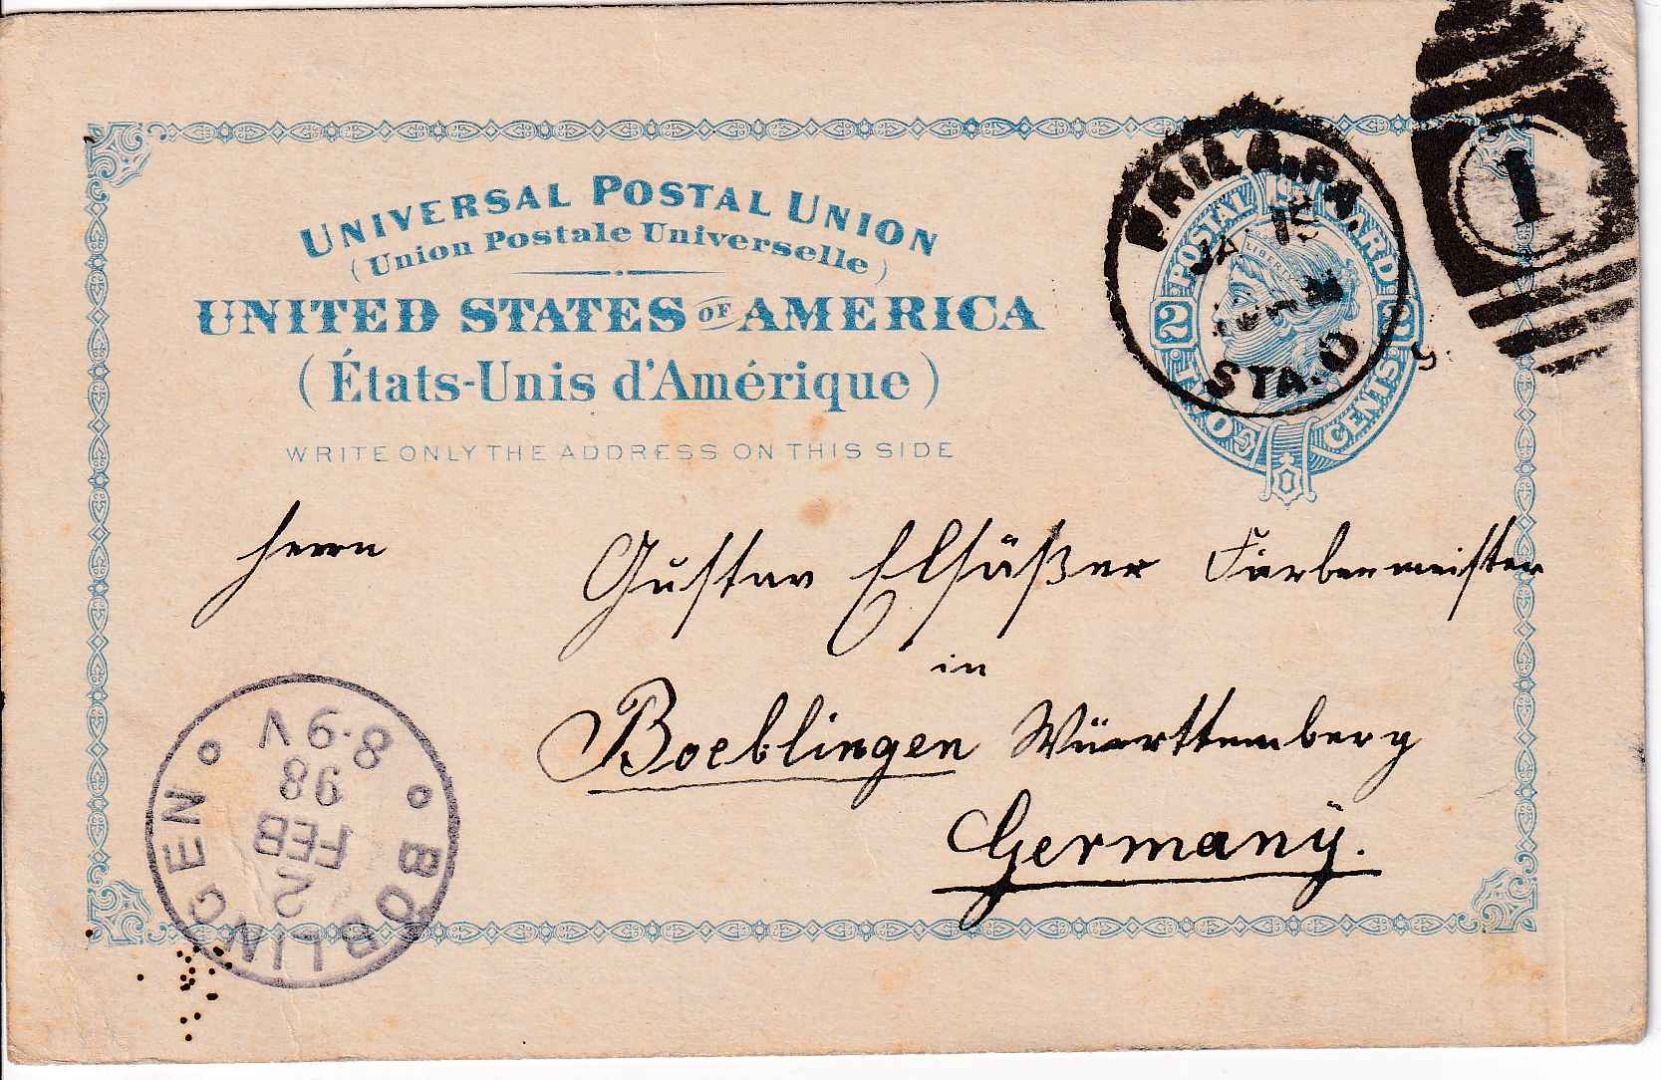 UNIVERSAL POSTAL UNION
(Union Postale Universelle)
UNITED STATES OF AMERICA
(États-Unis d'Amérique)
WRITE ONLY THE ADDRESS ON THIS SIDE
POSTAL CARD
2 2
TWO CENTS
LIBERTY
PHILA.PA.
JAN 15
STA. O
1
Herrn
Gustav Elsäßer Färbermeister
in
Boeblingen Württemberg
Germany.
BÖBLINGEN
2
FEB
98
8-9 V